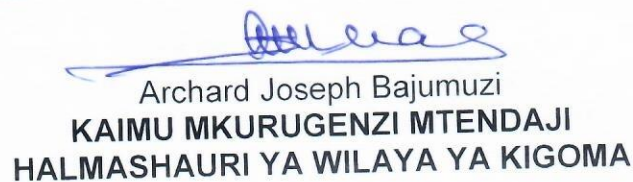 Archard Joseph Bajumuzi
KAIMU MKURUGENZI MTENDAJI
HALMASHAURI YA WILAYA YA KIGOMA